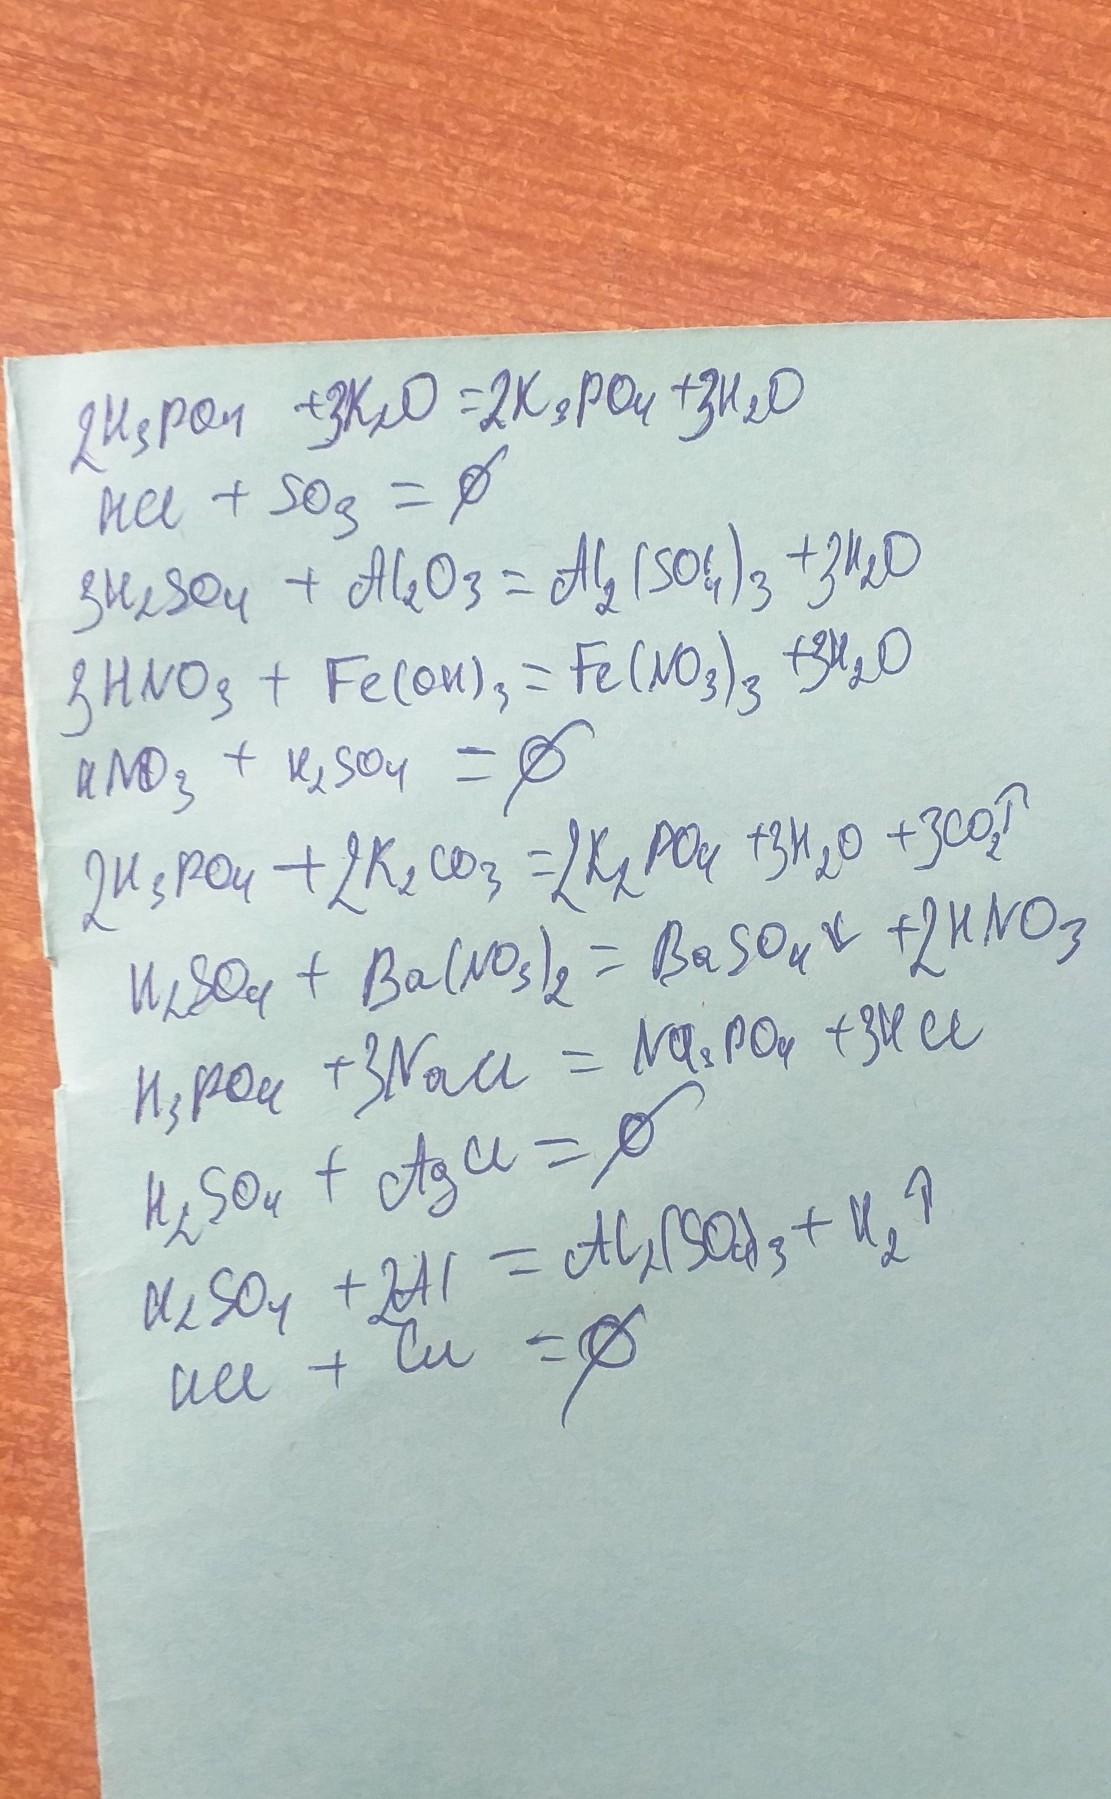 2H₃PO₄ +3K₂O =2K₃PO₄ +3H₂O
HCl + SO₃ = ∅
3H₂SO₄ + Al₂O₃ = Al₂(SO₄)₃ +3H₂O
3HNO₃ + Fe(OH)₃ = Fe(NO₃)₃ +3H₂O
HNO₃ + H₂SO₄ = ∅
2H₃PO₄ + 2K₂CO₃ =2K₂PO₄ +3H₂O +3CO₂↑
H₂SO₄ + Ba(NO₃)₂ = BaSO₄↓ +2HNO₃
H₃PO₄ +3NaCl = Na₃PO₄ +3HCl
H₂SO₄ + AgCl = ∅
H₂SO₄ +2Al = Al₂(SO₄)₃ + H₂↑
HCl + Cu = ∅